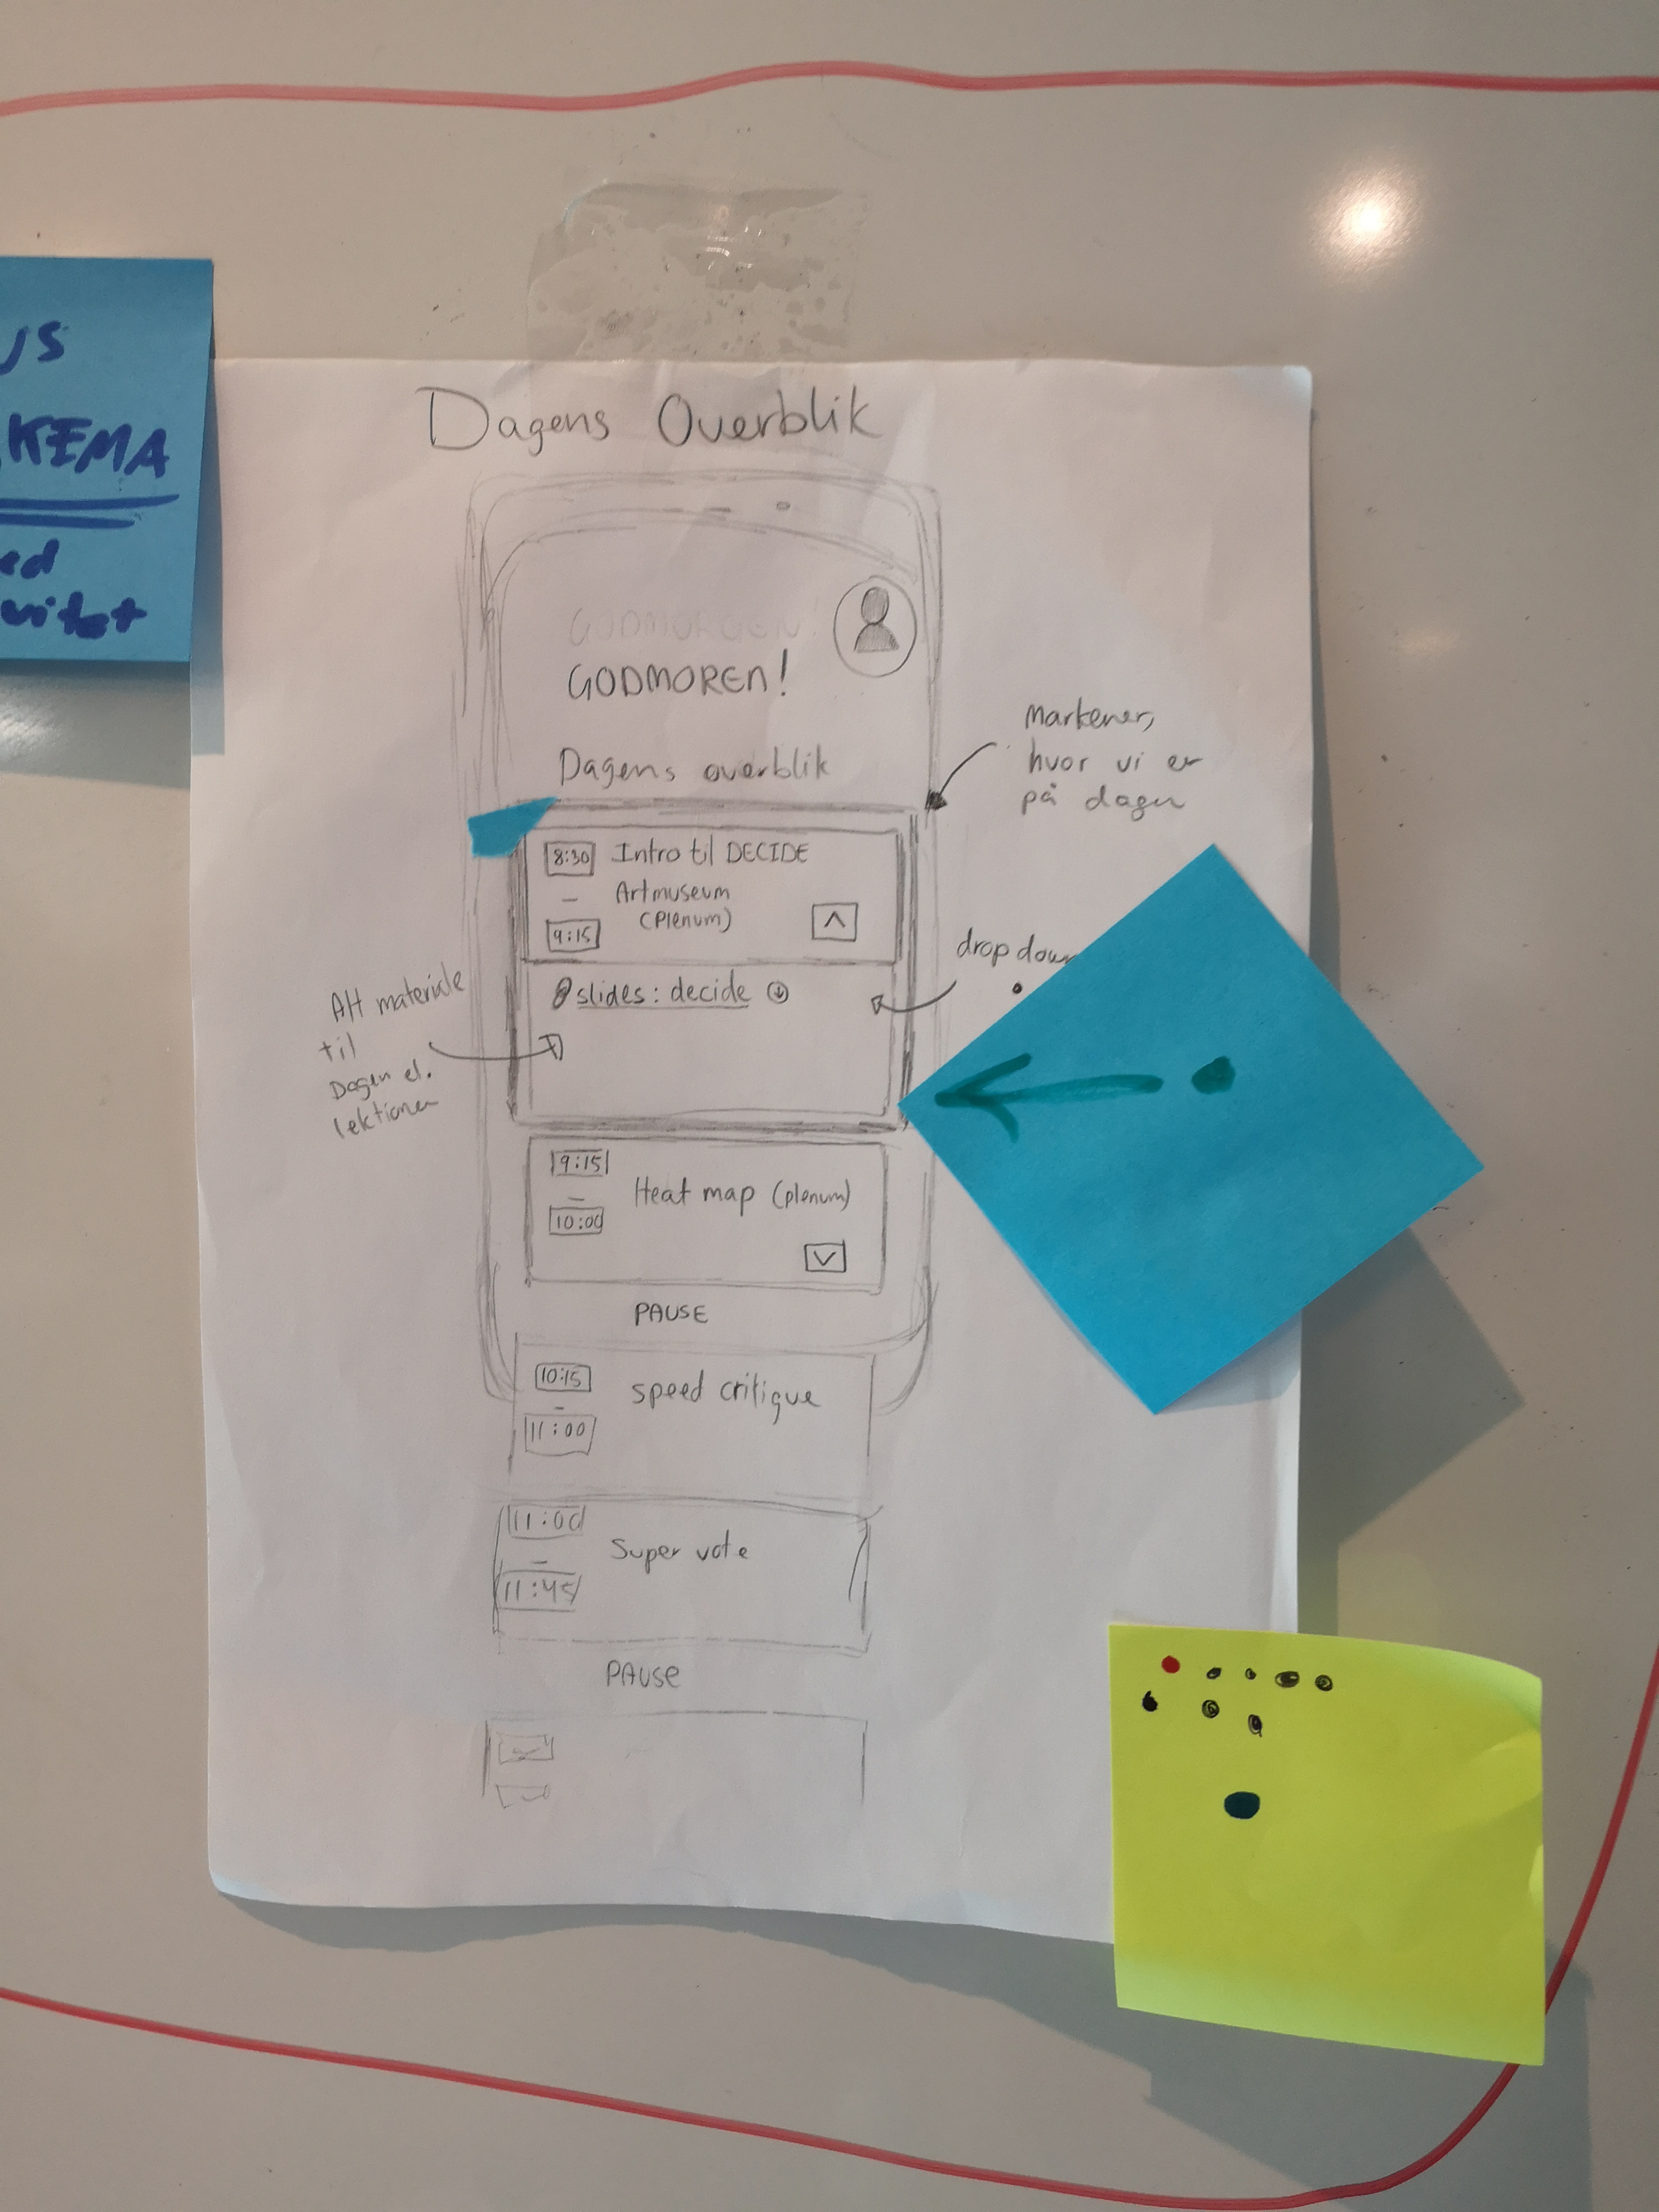 KEMA
Dagens Overblik
GODMORGEN!
GODMOREN!
Dagens overblik
Markerer,
hvor vi er
på dagen
8:30
Intro til DECIDE
–
Artmuseum
(Plenum)
9:15
drop down
Alt materiale
til
Dagen el.
lektionen
slides: decide
9:15
–
10:00
Heat map (plenum)
PAUSE
10:15
–
11:00
speed critique
11:00
–
11:45
Super vote
PAUSE